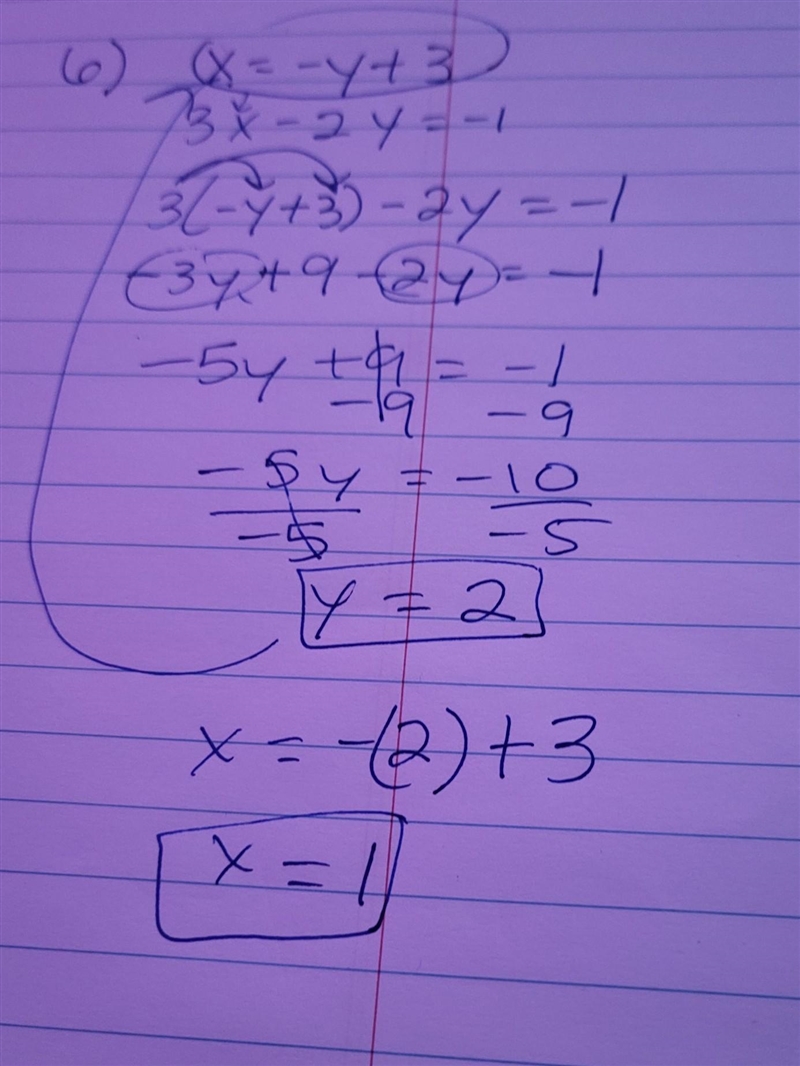 6) x = -y + 3
3x - 2y = -1
3(-y+3) - 2y = -1
-3y + 9 - 2y = -1
-5y + 9 = -1
-9 -9
-5y = -10
-5 -5
y = 2
x = -(2) + 3
x = 1